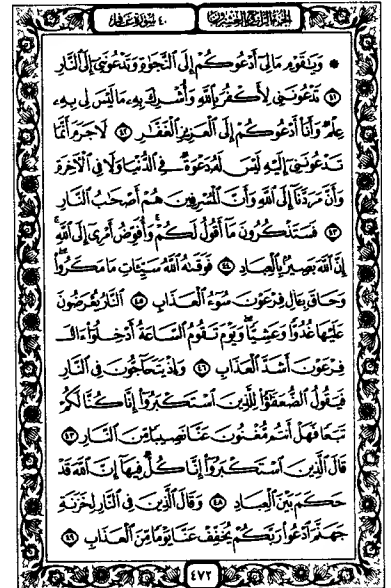 الجزء الرابع والعشرون ٤٠ سورة غافر
۞ وَيَٰقَوْمِ مَا لِىٓ أَدْعُوكُمْ إِلَى ٱلنَّجَوٰةِ وَتَدْعُونَنِىٓ إِلَى ٱلنَّارِ
٤١ تَدْعُونَنِى لِأَكْفُرَ بِٱللَّهِ وَأُشْرِكَ بِهِۦ مَا لَيْسَ لِى بِهِۦ
عِلْمٌ وَأَنَا۠ أَدْعُوكُمْ إِلَى ٱلْعَزِيزِ ٱلْغَفَّٰرِ ٤٢ لَا جَرَمَ أَنَّمَا
تَدْعُونَنِىٓ إِلَيْهِ لَيْسَ لَهُۥ دَعْوَةٌ فِى ٱلدُّنْيَا وَلَا فِى ٱلْأَخِرَةِ
وَأَنَّ مَرَدَّنَآ إِلَى ٱللَّهِ وَأَنَّ ٱلْمُسْرِفِينَ هُمْ أَصْحَٰبُ ٱلنَّارِ
٤٣ فَسَتَذْكُرُونَ مَآ أَقُولُ لَكُمْ وَأُفَوِّضُ أَمْرِىٓ إِلَى ٱللَّهِ
إِنَّ ٱللَّهَ بَصِيرٌۢ بِٱلْعِبَادِ ٤٤ فَوَقَىٰهُ ٱللَّهُ سَيِّـَٔاتِ مَا مَكَرُوا۟
وَحَاقَ بِـَٔالِ فِرْعَوْنَ سُوٓءُ ٱلْعَذَابِ ٤٥ ٱلنَّارُ يُعْرَضُونَ
عَلَيْهَا غُدُوًّا وَعَشِيًّا وَيَوْمَ تَقُومُ ٱلسَّاعَةُ أَدْخِلُوٓا۟ ءَالَ
فِرْعَوْنَ أَشَدَّ ٱلْعَذَابِ ٤٦ وَإِذْ يَتَحَآجُّونَ فِى ٱلنَّارِ
فَيَقُولُ ٱلضُّعَفَٰٓؤُا۟ لِلَّذِينَ ٱسْتَكْبَرُوٓا۟ إِنَّا كُنَّا لَكُمْ
تَبَعًا فَهَلْ أَنتُم مُّغْنُونَ عَنَّا نَصِيبًا مِّنَ ٱلنَّارِ ٤٧
قَالَ ٱلَّذِينَ ٱسْتَكْبَرُوٓا۟ إِنَّا كُلٌّ فِيهَآ إِنَّ ٱللَّهَ قَدْ
حَكَمَ بَيْنَ ٱلْعِبَادِ ٤٨ وَقَالَ ٱلَّذِينَ فِى ٱلنَّارِ لِخَزَنَةِ
جَهَنَّمَ ٱدْعُوا۟ رَبَّكُمْ يُخَفِّفْ عَنَّا يَوْمًا مِّنَ ٱلْعَذَابِ ٤٩
٤٧٢